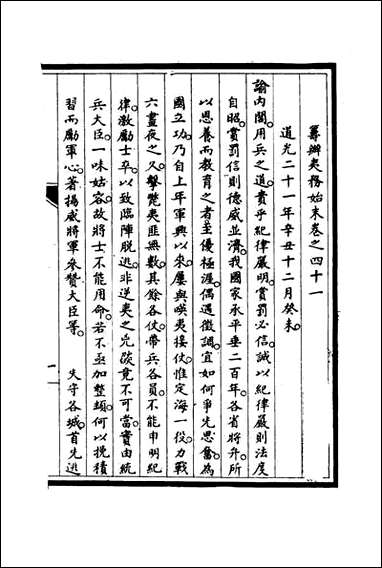 籌辦夷務始末卷之四十一
道光二十一年辛丑十二月癸未。
諭內閣。用兵之道。貴乎紀律嚴明。賞罰必信。誠以紀律嚴則法度
自昭。賞罰信則德威並濟。我國家承平垂二百年。各省將弁。所
以恩養而教育之者。至優極渥。偶遇徵調。宜如何爭先思奮。為
國立功。乃自上年軍興以來。屢與𠸄夷接仗。惟定海一役。力戰
六晝夜之久。擊斃夷匪無數。其餘各仗。帶兵各員。不能申明紀
律。激勵士卒。以致臨陣脫逃。非逆夷之兇燄竟不可當。實由統
兵大臣。一味姑容。故將士不能用命。若不亟加整頓。何以挽積
習而勵軍心。著揚威將軍參贊大臣等。 失守各城首先逃